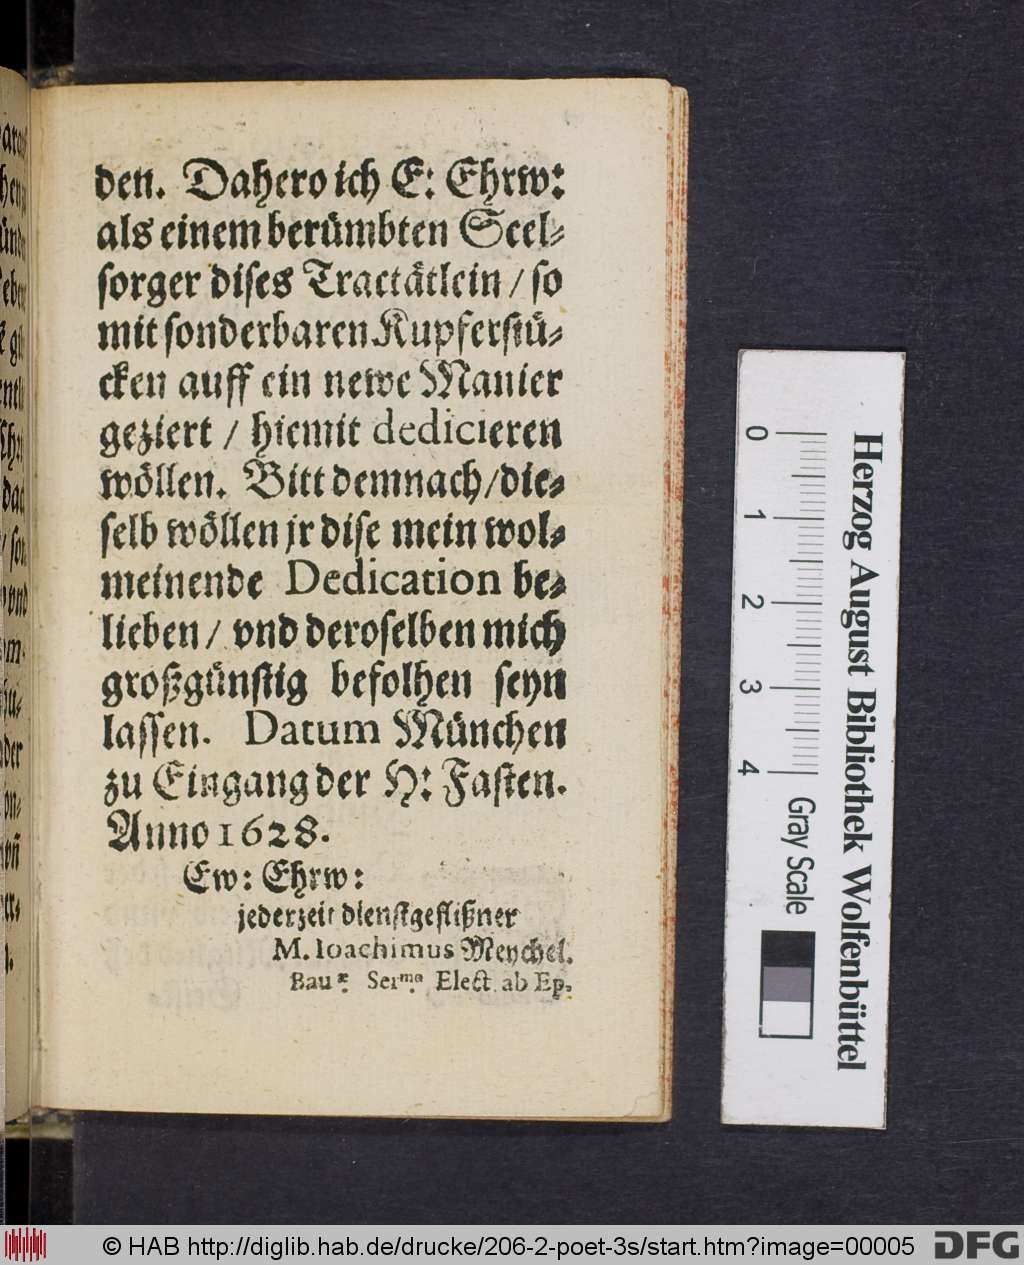 den. Dahero ich E: Ehrw:
als einem berümbten Seel⸗
sorger dises Tractätlein / so
mit sonderbaren Kupferstü⸗
cken auff ein newe Manier
geziert / hiemit dedicieren
wöllen. Bitt demnach/die⸗
selb wöllen jr dise mein wol⸗
meinende Dedication be⸗
lieben / vnd deroselben mich
großgünstig befolhen seyn
lassen. Datum München
zu Eingang der H: Fasten.
Anno 1628.
Ew: Ehrw:
jederzeit dienstgeflißner
M. Ioachimus Meychel.
Bauæ. Serma. Elect. ab Ep.
Herzog August Bibliothek Wolfenbüttel
0 1 2 3 4
Gray Scale
© HAB http://diglib.hab.de/drucke/206-2-poet-3s/start.htm?image=00005
DFG